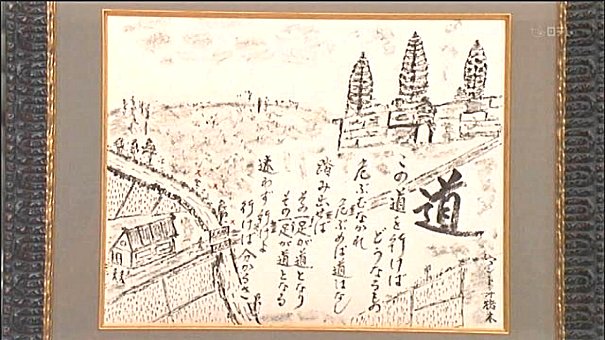 道
この道を行けば
どうなるもの
危ぶむなかれ
危ぶめば道はなし
踏み出せば
その一足が道となり
その一足が道となる
迷わず行けよ
行けば分かるさ
アントニオ猪木
日テレ